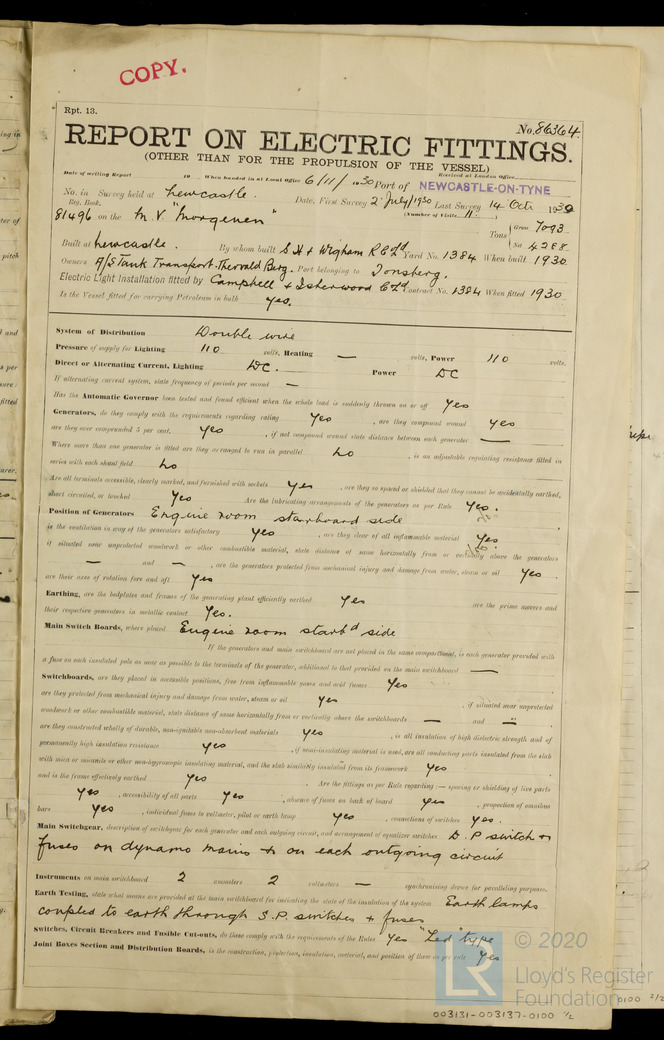 COPY.
Rpt. 13.
No. 86364
REPORT ON ELECTRIC FITTINGS.
(OTHER THAN FOR THE PROPULSION OF THE VESSEL)
Date of writing Report 19 When handed in at Local Office 6/11/1930 Port of NEWCASTLE-ON-TYNE
Received at London Office
No. in Survey held at Newcastle. Date, First Survey 2 July/1930 Last Survey 14 Oct 1930
Reg. Book. (Number of Visits 11.)
81496 on the M.V "Morgenen" Tons { Gross 7093
Net 4288
Built at Newcastle. By whom built S.H & Wigham R C Ltd Yard No. 1384 When built 1930
Owners A/S Tank Transport. Thorvald Berg. Port belonging to Tonsberg.
Electric Light Installation fitted by Campbell & Isherwood C Ltd Contract No. 1384 When fitted 1930
Is the Vessel fitted for carrying Petroleum in bulk Yes.
System of Distribution Double wire
Pressure of supply for Lighting 110 volts, Heating — volts, Power 110 volts.
Direct or Alternating Current, Lighting DC. Power DC
If alternating current system, state frequency of periods per second —
Has the Automatic Governor been tested and found efficient when the whole load is suddenly thrown on or off Yes
Generators, do they comply with the requirements regarding rating Yes, are they compound wound Yes
are they over compounded 5 per cent. Yes, if not compound wound state distance between each generator —
Where more than one generator is fitted are they arranged to run in parallel No, is an adjustable regulating resistance fitted in
series with each shunt field No
Are all terminals accessible, clearly marked, and furnished with sockets Yes, are they so spaced or shielded that they cannot be accidentally earthed,
short circuited, or touched Yes Are the lubricating arrangements of the generators as per Rule Yes.
Position of Generators Engine room starboard side
is the ventilation in way of the generators satisfactory Yes, are they clear of all inflammable material Yes.
if situated near unprotected woodwork or other combustible material, state distance of same horizontally from or vertically above the generators
— and —, are the generators protected from mechanical injury and damage from water, steam or oil Yes
are their axes of rotation fore and aft Yes
Earthing, are the bedplates and frames of the generating plant efficiently earthed Yes are the prime movers and
their respective generators in metallic contact Yes.
Main Switch Boards, where placed Engine room starbd side
If the generators and main switchboard are not placed in the same compartment, is each generator provided with
a fuse on each insulated pole as near as possible to the terminals of the generator, additional to that provided on the main switchboard —
Switchboards, are they placed in accessible positions, free from inflammable gases and acid fumes Yes
are they protected from mechanical injury and damage from water, steam or oil Yes, if situated near unprotected
woodwork or other combustible material, state distance of same horizontally from or vertically above the switchboards — and —
are they constructed wholly of durable, non-ignitable non-absorbent materials Yes, is all insulation of high dielectric strength and of
permanently high insulation resistance Yes, if semi-insulating material is used, are all conducting parts insulated from the slab
with mica or micanite or other non-hygroscopic insulating material, and the slab similarly insulated from its framework Yes
and is the frame effectively earthed Yes Are the fittings as per Rule regarding :— spacing or shielding of live parts
Yes, accessibility of all parts Yes, absence of fuses on back of board Yes, proportion of omnibus
bars Yes, individual fuses to voltmeter, pilot or earth lamp Yes, connections of switches Yes.
Main Switchgear, description of switchgear for each generator and each outgoing circuit, and arrangement of equalizer switches D.P switch &
fuses on dynamo mains & on each outgoing circuit
Instruments on main switchboard 2 ammeters 2 voltmeters — synchronising device for paralleling purposes.
Earth Testing, state what means are provided at the main switchboard for indicating the state of the insulation of the system Earth lamps
coupled to earth through S.P. switches & fuses
Switches, Circuit Breakers and Fusible Cut-outs, do these comply with the requirements of the Rules Yes type
Joint Boxes Section and Distribution Boards, is the construction, protection, insulation, material, and position of these as per rule Yes
© 2020
Lloyd's Register
Foundation
003131-003137-0100 1/2